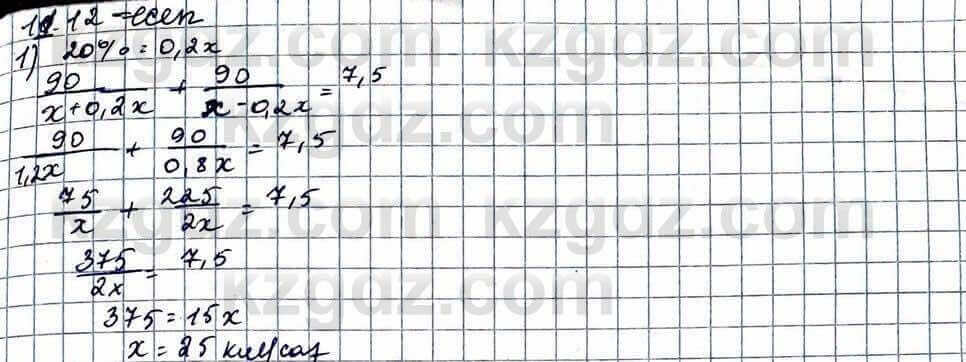 11.12-есеп
1) 20% = 0,2x
90/(x+0,2x) + 90/(x-0,2x) = 7,5
90/1,2x + 90/0,8x = 7,5
75/x + 225/2x = 7,5
375/2x = 7,5
375 = 15x
x = 25 км/сағ
kzgdz.com kzgdz.com
kzgdz.com
kzgdz.com kzgdz.com
kzgdz.com